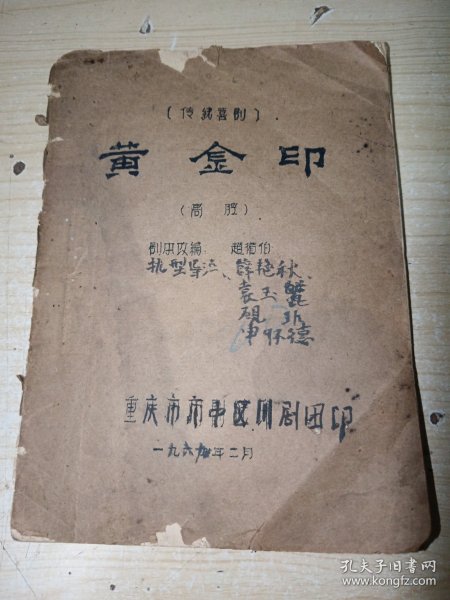 〔传统喜剧〕
黄金印
（高腔）
剧本改编 赵循伯
执型导演、薛艳秋、
袁玉
德
重庆市市中区川剧团印
一九六 年二月
孔夫子旧书网
www.kongfz.com